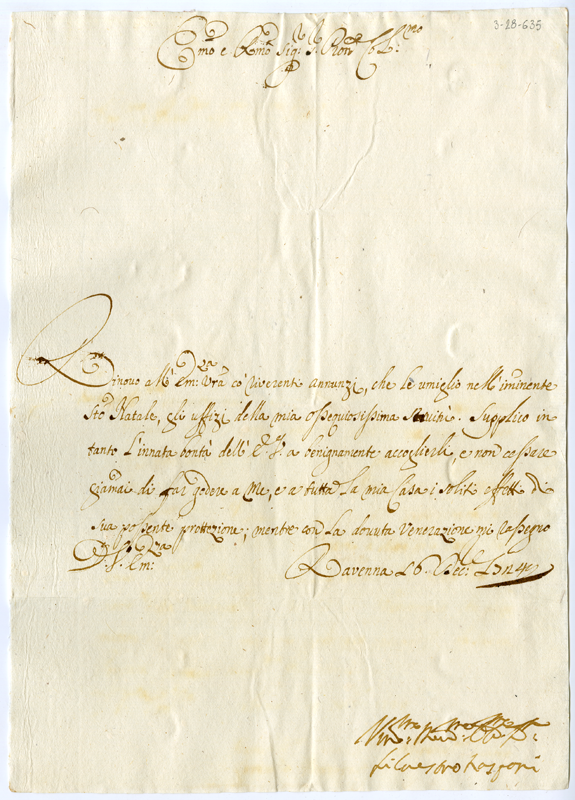 3-28-635
Em.mo e R.mo Sig.r Pron Col.mo
Rinovo a V Em: Vra co' riverenti annunzi, che le umiglio nell' iminente
Sto Natale, gli uffizi della mia ossequiosissima Servitù. Supplico in
tanto l'innata bontà dell' E. V. a benignamente accoglierli, e non cessare
giamai di far godere a Me, e a tutta la mia Casa i soliti effetti di
Sua possente protezione; mentre con la dovuta Venerazione mi rassegno
Di V. Em:za
Ravenna 16 Dec: